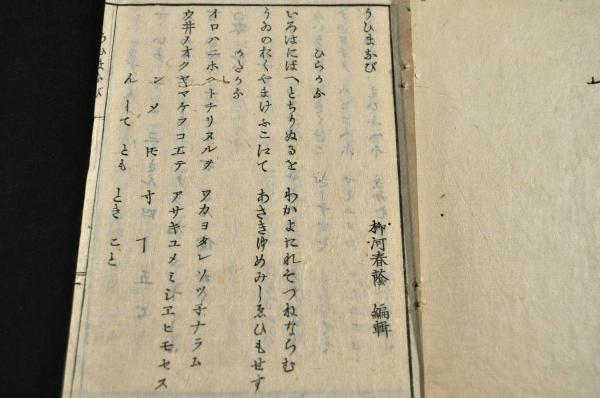 うひまなび
柳河春蔭 編輯
ひらかな
いろはにほへとちりぬるを わかよたれそつねならむ
うゐのおくやまけふこえて あさきゆめみしゑひもせす
かたかな
イロハニホヘトチリヌルヲ ワカヨタレソツ子ナラム
ウ井ノオクヤマケフコエテ アサキユメミシヱヒモセス
ン
んして とも とき こと
うひまなび